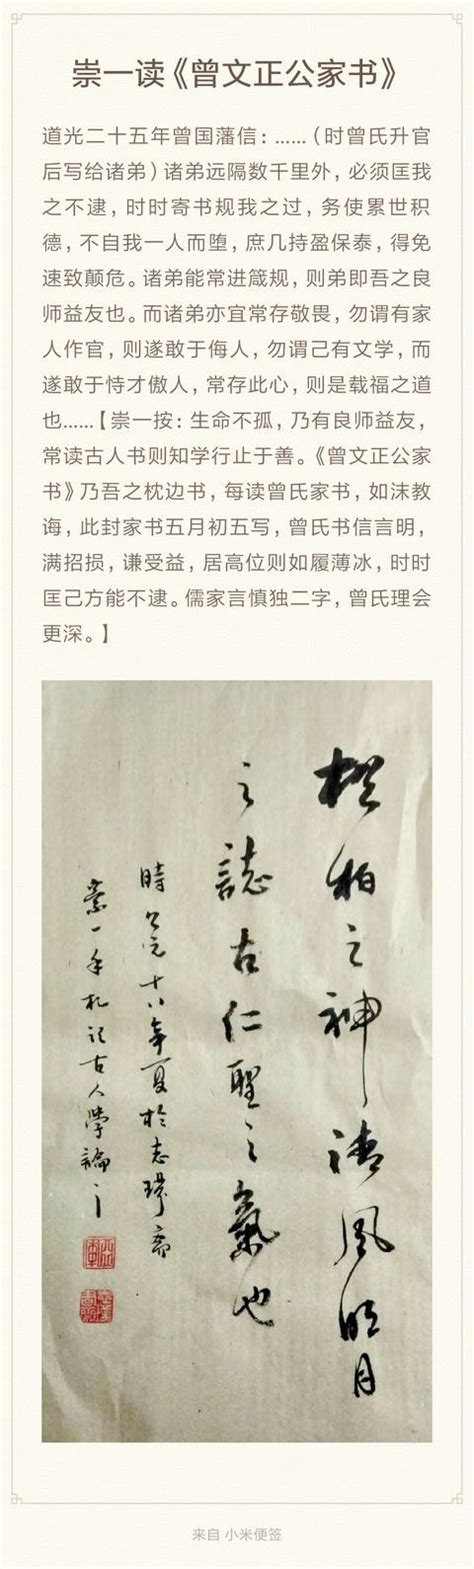 崇一读《曾文正公家书》
道光二十五年曾国藩信：……（时曾氏升官
后写给诸弟）诸弟远隔数千里外，必须匡我
之不逮，时时寄书规我之过，务使累世积
德，不自我一人而堕，庶几持盈保泰，得免
速致颠危。诸弟能常进箴规，则弟即吾之良
师益友也。而诸弟亦宜常存敬畏，勿谓有家
人作官，则遂敢于侮人，勿谓己有文学，而
遂敢于恃才傲人，常存此心，则是载福之道
也……【崇一按：生命不孤，乃有良师益友，
常读古人书则知学行止于善。《曾文正公家
书》乃吾之枕边书，每读曾氏家书，如沫教
诲，此封家书五月初五写，曾氏书信言明，
满招损，谦受益，居高位则如履薄冰，时时
匡己方能不逮。儒家言慎独二字，曾氏理会
更深。】
松柏之神清风明月
之誌古仁聖之氣也
時公元十八年夏於志琴斋
崇一手札記古人學論之
来自 小米便签